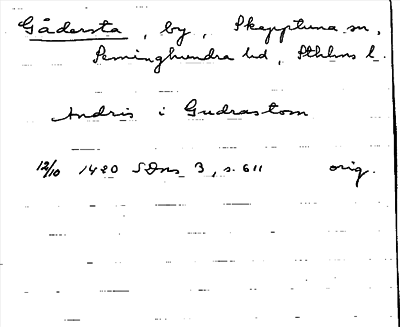 Gådersta, by, Skepptuna sn,
Seminghundra hd, Sthlms l.
Andris i Gudrastom
12/10 1420 SDns 3, s. 611 orig.